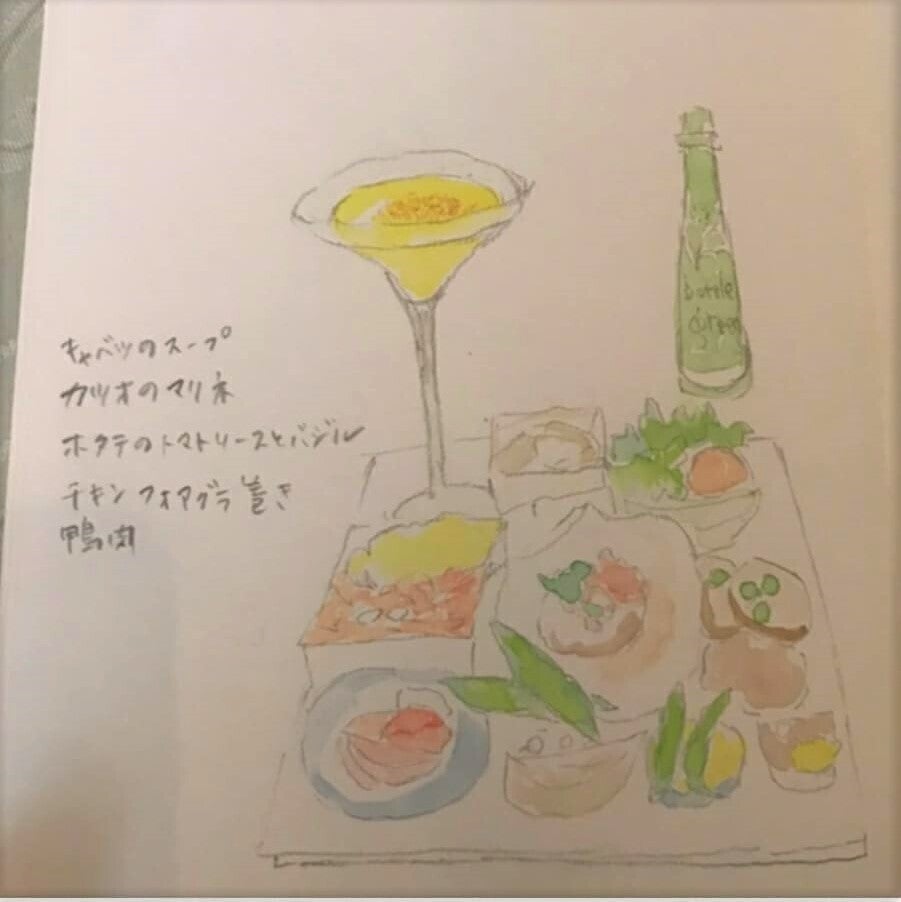 キャベツのスープ
カツオのマリネ
ホタテのトマトソースとバジル
チキンフォアグラ巻き
鴨肉
bottle
Green